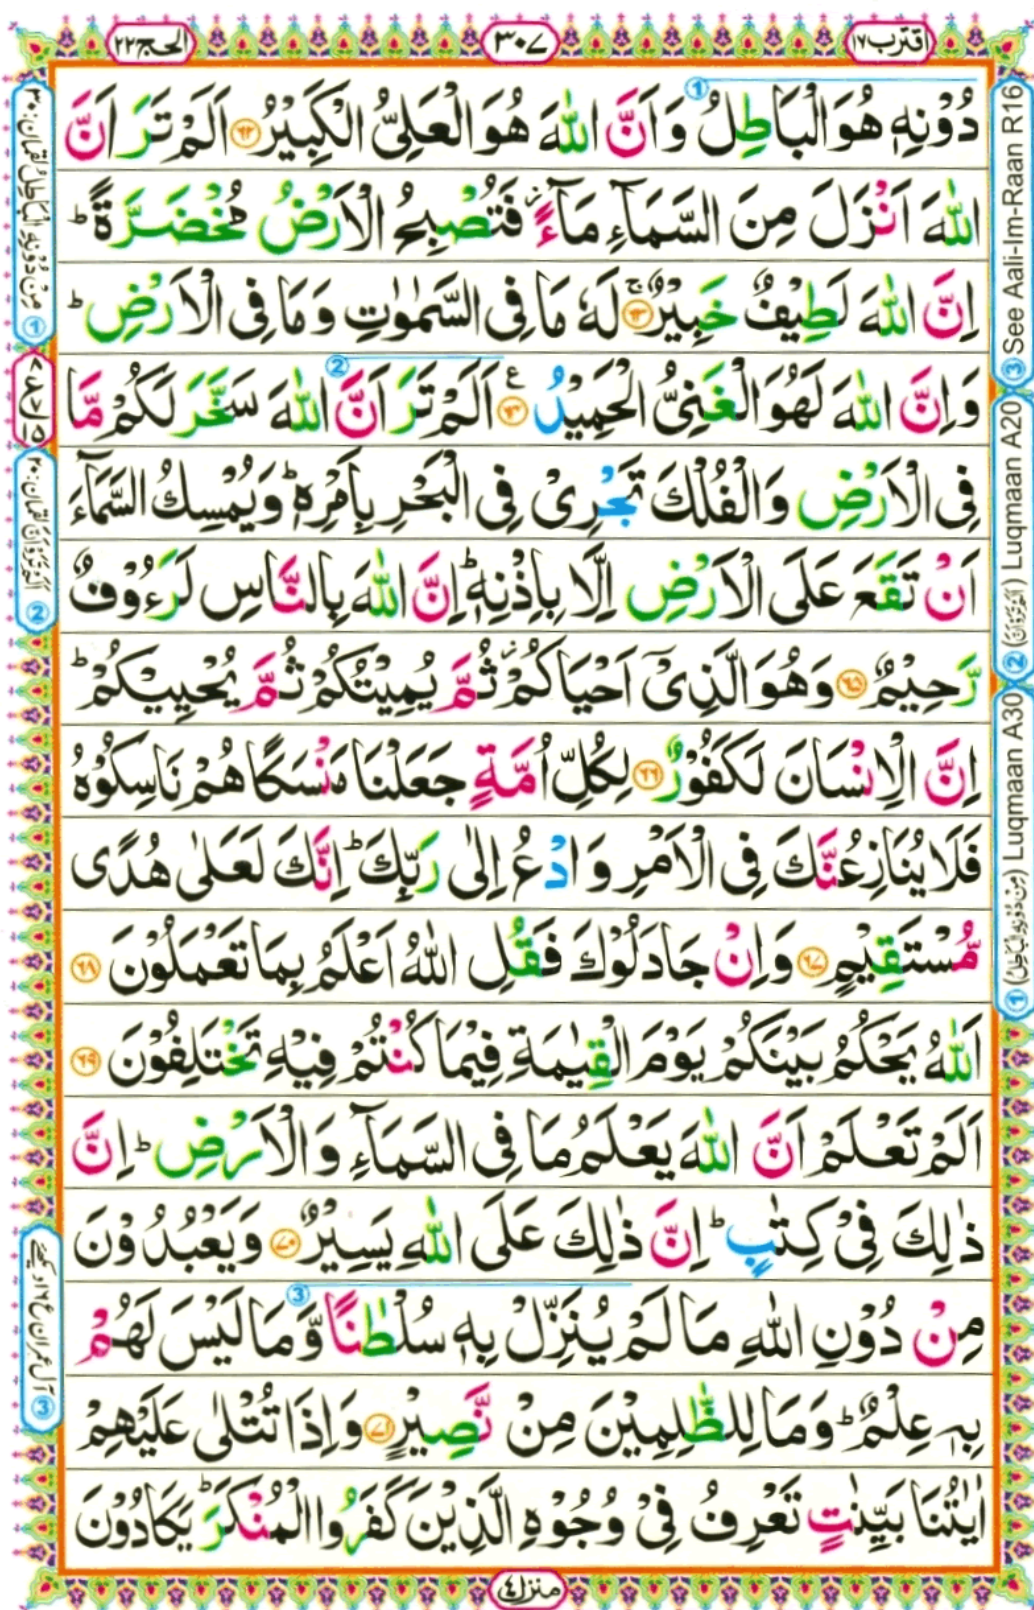 اقترب ١٧
٣٠٧
الحج ٢٢
دُوْنِهٖ هُوَ الْبَاطِلُ وَاَنَّ اللّٰهَ هُوَ الْعَلِیُّ الْكَبِیْرُ ۝٦٢ اَلَمْ تَرَ اَنَّ
اللّٰهَ اَنْزَلَ مِنَ السَّمَآءِ مَآءً ز فَتُصْبِحُ الْاَرْضُ مُخْضَرَّةً ؕ
اِنَّ اللّٰهَ لَطِیْفٌ خَبِیْرٌ ۚ ۝٦٣ لَهٗ مَا فِی السَّمٰوٰتِ وَمَا فِی الْاَرْضِ ؕ
وَاِنَّ اللّٰهَ لَهُوَ الْغَنِیُّ الْحَمِیْدُ ۝٦٤ ع اَلَمْ تَرَ اَنَّ اللّٰهَ سَخَّرَ لَكُمْ مَّا
فِی الْاَرْضِ وَالْفُلْكَ تَجْرِیْ فِی الْبَحْرِ بِاَمْرِهٖ ؕ وَیُمْسِكُ السَّمَآءَ
اَنْ تَقَعَ عَلَی الْاَرْضِ اِلَّا بِاِذْنِهٖ ؕ اِنَّ اللّٰهَ بِالنَّاسِ لَرَءُوْفٌ
رَّحِیْمٌ ۝٦٥ وَهُوَ الَّذِیْۤ اَحْیَاكُمْ ز ثُمَّ یُمِیْتُكُمْ ثُمَّ یُحْیِیْكُمْ ؕ
اِنَّ الْاِنْسَانَ لَكَفُوْرٌ ۝٦٦ لِكُلِّ اُمَّةٍ جَعَلْنَا مَنْسَكًا هُمْ نَاسِكُوْهُ
فَلَا یُنَازِعُنَّكَ فِی الْاَمْرِ وَادْعُ اِلٰی رَبِّكَ ؕ اِنَّكَ لَعَلٰی هُدًی
مُّسْتَقِیْمٍ ۝٦٧ وَاِنْ جَادَلُوْكَ فَقُلِ اللّٰهُ اَعْلَمُ بِمَا تَعْمَلُوْنَ ۝٦٨
اَللّٰهُ یَحْكُمُ بَیْنَكُمْ یَوْمَ الْقِیٰمَةِ فِیْمَا كُنْتُمْ فِیْهِ تَخْتَلِفُوْنَ ۝٦٩
اَلَمْ تَعْلَمْ اَنَّ اللّٰهَ یَعْلَمُ مَا فِی السَّمَآءِ وَالْاَرْضِ ؕ اِنَّ
ذٰلِكَ فِیْ كِتٰبٍ ؕ اِنَّ ذٰلِكَ عَلَی اللّٰهِ یَسِیْرٌ ۝٧٠ وَیَعْبُدُوْنَ
مِنْ دُوْنِ اللّٰهِ مَا لَمْ یُنَزِّلْ بِهٖ سُلْطٰنًا وَّمَا لَیْسَ لَهُمْ
بِهٖ عِلْمٌ ؕ وَمَا لِلظّٰلِمِیْنَ مِنْ نَّصِیْرٍ ۝٧١ وَاِذَا تُتْلٰی عَلَیْهِمْ
اٰیٰتُنَا بَیِّنٰتٍ تَعْرِفُ فِیْ وُجُوْهِ الَّذِیْنَ كَفَرُوا الْمُنْكَرَ ؕ یَكَادُوْنَ
منزل ٤
① (مِنْ دُوْنِهِ الْبَاطِلُ) Luqmaan A30
② (اَلَمْ تَرَ اَنَّ) Luqmaan A20
③ See Aali-Im-Raan R16
① مِنْ دُوْنِهِ الْبَاطِلُ لقمان:٣٠
② اَلَمْ تَرَوْا اَنَّ لقمان:٢٠
③ آل عمران ع ١٦ دیکھئے